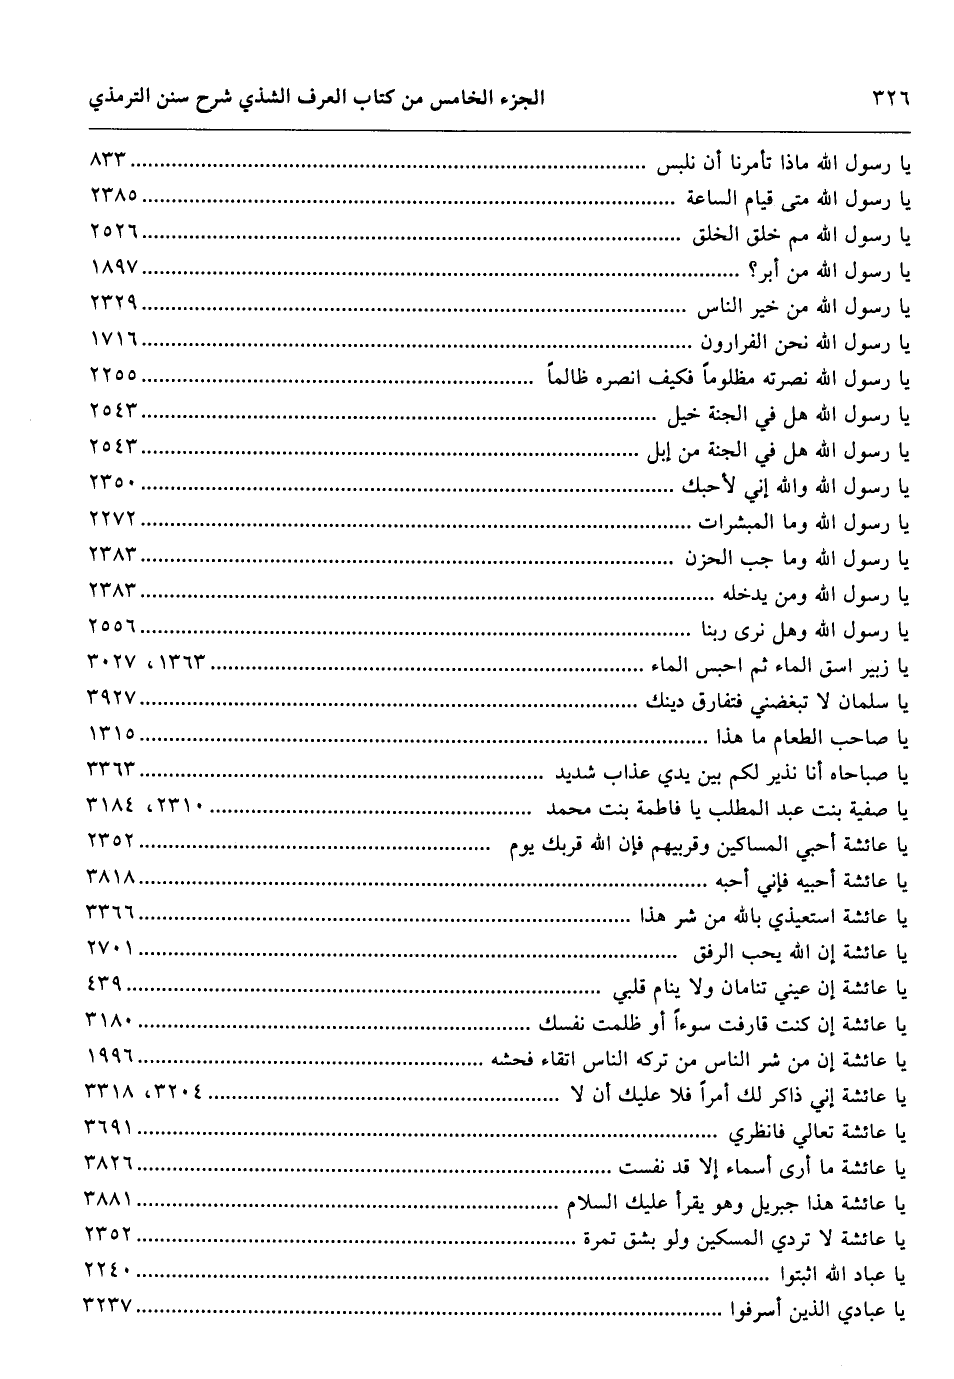 ٣٢٦ الجزء الخامس من كتاب العرف الشذي شرح سنن الترمذي
يا رسول الله ماذا تأمرنا أن نلبس ........ ٨٣٣
يا رسول الله متى قيام الساعة ........ ٢٣٨٥
يا رسول الله مم خلق الخلق ........ ٢٥٢٦
يا رسول الله من أبر؟ ........ ١٨٩٧
يا رسول الله من خير الناس ........ ٢٣٢٩
يا رسول الله نحن الفرارون ........ ١٧١٦
يا رسول الله نصرته مظلوماً فكيف انصره ظالماً ........ ٢٢٥٥
يا رسول الله هل في الجنة خيل ........ ٢٥٤٣
يا رسول الله هل في الجنة من إبل ........ ٢٥٤٣
يا رسول الله والله إني لأحبك ........ ٢٣٥٠
يا رسول الله وما المبشرات ........ ٢٢٧٢
يا رسول الله وما جب الحزن ........ ٢٣٨٣
يا رسول الله ومن يدخله ........ ٢٣٨٣
يا رسول الله وهل نرى ربنا ........ ٢٥٥٦
يا زبير اسق الماء ثم احبس الماء ........ ١٣٦٣، ٣٠٢٧
يا سلمان لا تبغضني فتفارق دينك ........ ٣٩٢٧
يا صاحب الطعام ما هذا ........ ١٣١٥
يا صباحاه أنا نذير لكم بين يدي عذاب شديد ........ ٣٣٦٣
يا صفية بنت عبد المطلب يا فاطمة بنت محمد ........ ٢٣١٠، ٣١٨٤
يا عائشة أحبي المساكين وقربيهم فإن الله قربك يوم ........ ٢٣٥٢
يا عائشة أحبيه فإني أحبه ........ ٣٨١٨
يا عائشة استعيذي بالله من شر هذا ........ ٣٣٦٦
يا عائشة إن الله يحب الرفق ........ ٢٧٠١
يا عائشة إن عيني تنامان ولا ينام قلبي ........ ٤٣٩
يا عائشة إن كنت قارفت سوءاً أو ظلمت نفسك ........ ٣١٨٠
يا عائشة إن من شر الناس من تركه الناس اتقاء فحشه ........ ١٩٩٦
يا عائشة إني ذاكر لك أمراً فلا عليك أن لا ........ ٣٢٠٤، ٣٣١٨
يا عائشة تعالي فانظري ........ ٣٦٩١
يا عائشة ما أرى أسماء إلا قد نفست ........ ٣٨٢٦
يا عائشة هذا جبريل وهو يقرأ عليك السلام ........ ٣٨٨١
يا عائشة لا تردي المسكين ولو بشق تمرة ........ ٢٣٥٢
يا عباد الله اثبتوا ........ ٢٢٤٠
يا عبادي الذين أسرفوا ........ ٣٢٣٧